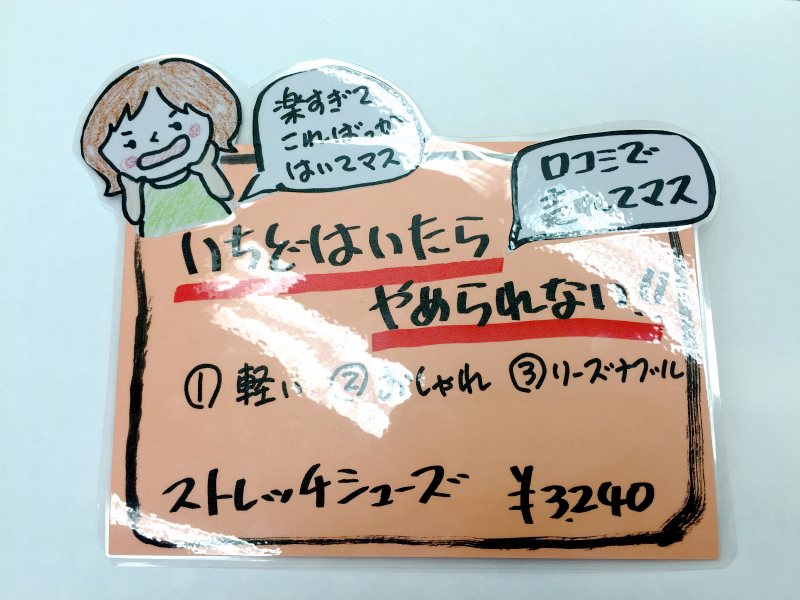 楽すぎて
こればっか
はいてマス
口コミで
売れてマス
いちどはいたら
やめられない!!
①軽い ②おしゃれ ③リーズナブル
ストレッチシューズ ¥3,240